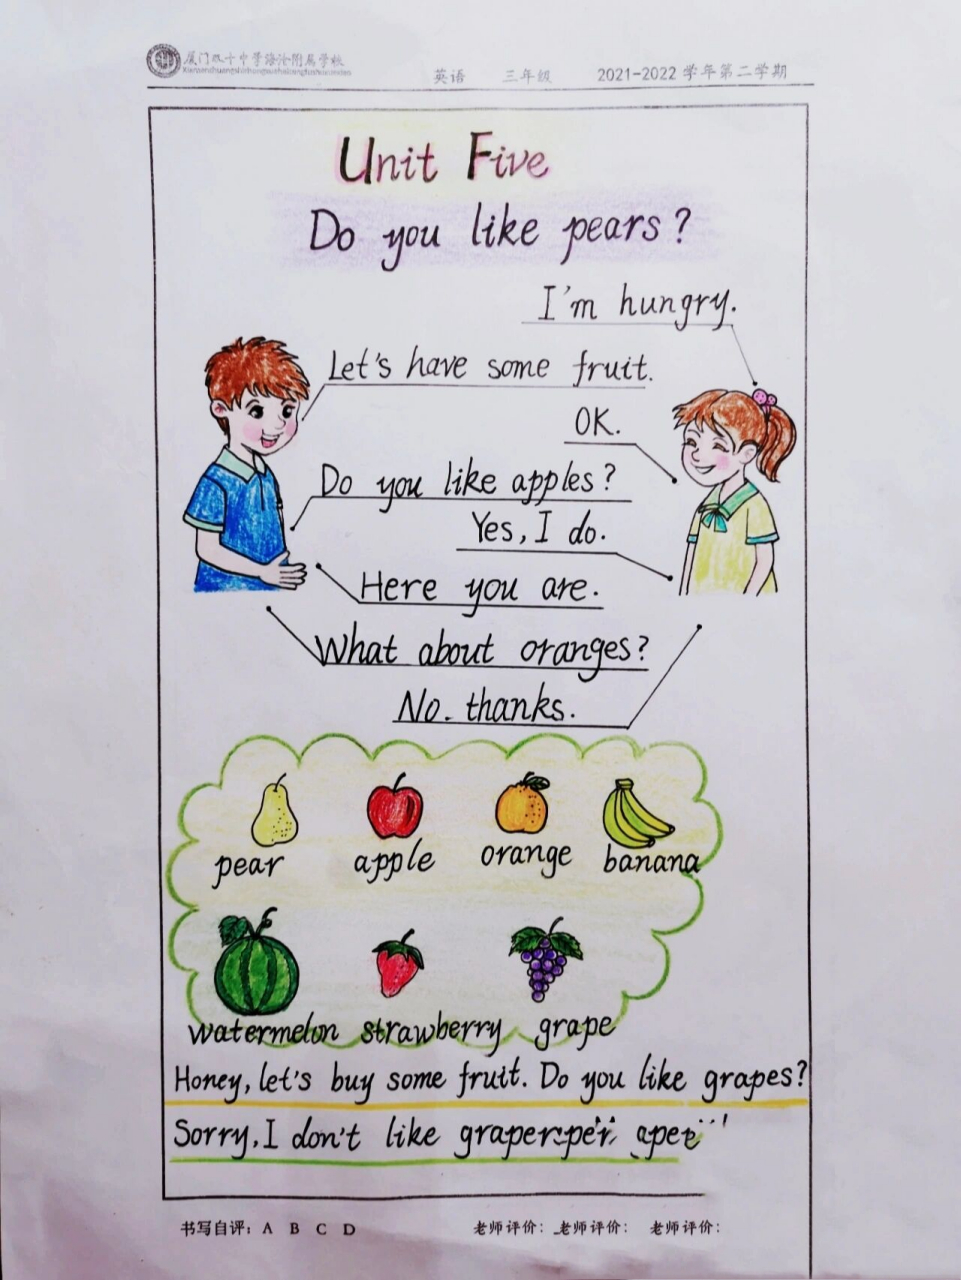 厦门双十中学海沧附属学校
英语 三年级 2021-2022 学年第二学期
Unit Five
Do you like pears?
I'm hungry.
Let's have some fruit.
OK.
Do you like apples?
Yes, I do.
Here you are.
What about oranges?
No. thanks.
pear apple orange banana
watermelon strawberry grape
Honey, let's buy some fruit. Do you like grapes?
Sorry, I don't like
书写自评: A B C D 老师评价: 老师评价: 老师评价: